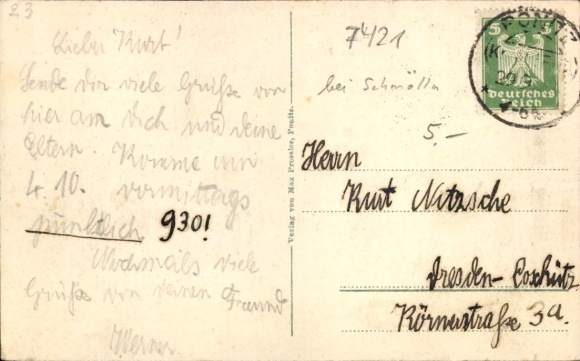 23
Lieber Kurt!
Sende dir viele Grüße von
hier am dich und deine
Eltern. Komme am
4.10. vormittags
pünktlich 930!
Nochmals viele
Grüße von deinem Freund
Werner.
Verlag von Max Pressler, Ponitz.
7421
bei Schmölln
5.-
PONITZ
5 5
Deutsches
Reich
Herrn
Kurt Nitzsche
Dresden-Coschütz
Körnerstraße 3a.